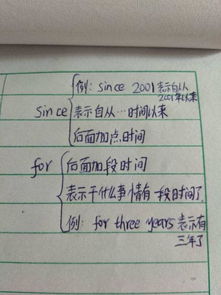 例: since 2001 表示自从
2001年以来
since 表示自从…时间以来
后面加点时间
for 后面加段时间
表示干什么事情有一段时间了
例: for three years 表示有
三年了